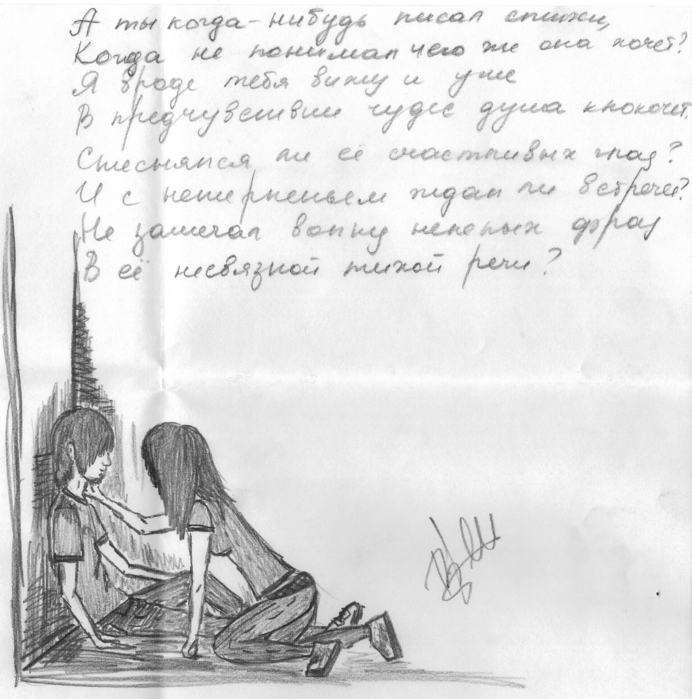 А ты когда-нибудь писал стихи,
Когда не понимал чего же она хочет?
Я вроде тебя вижу и уже
В предчувствии чудес душа клокочет.
Стеснялся ли её счастливых глаз?
И с нетерпеньем ждал ли встречей?
Не замечал волну нелепых фраз
В её несвязной тихой речи?